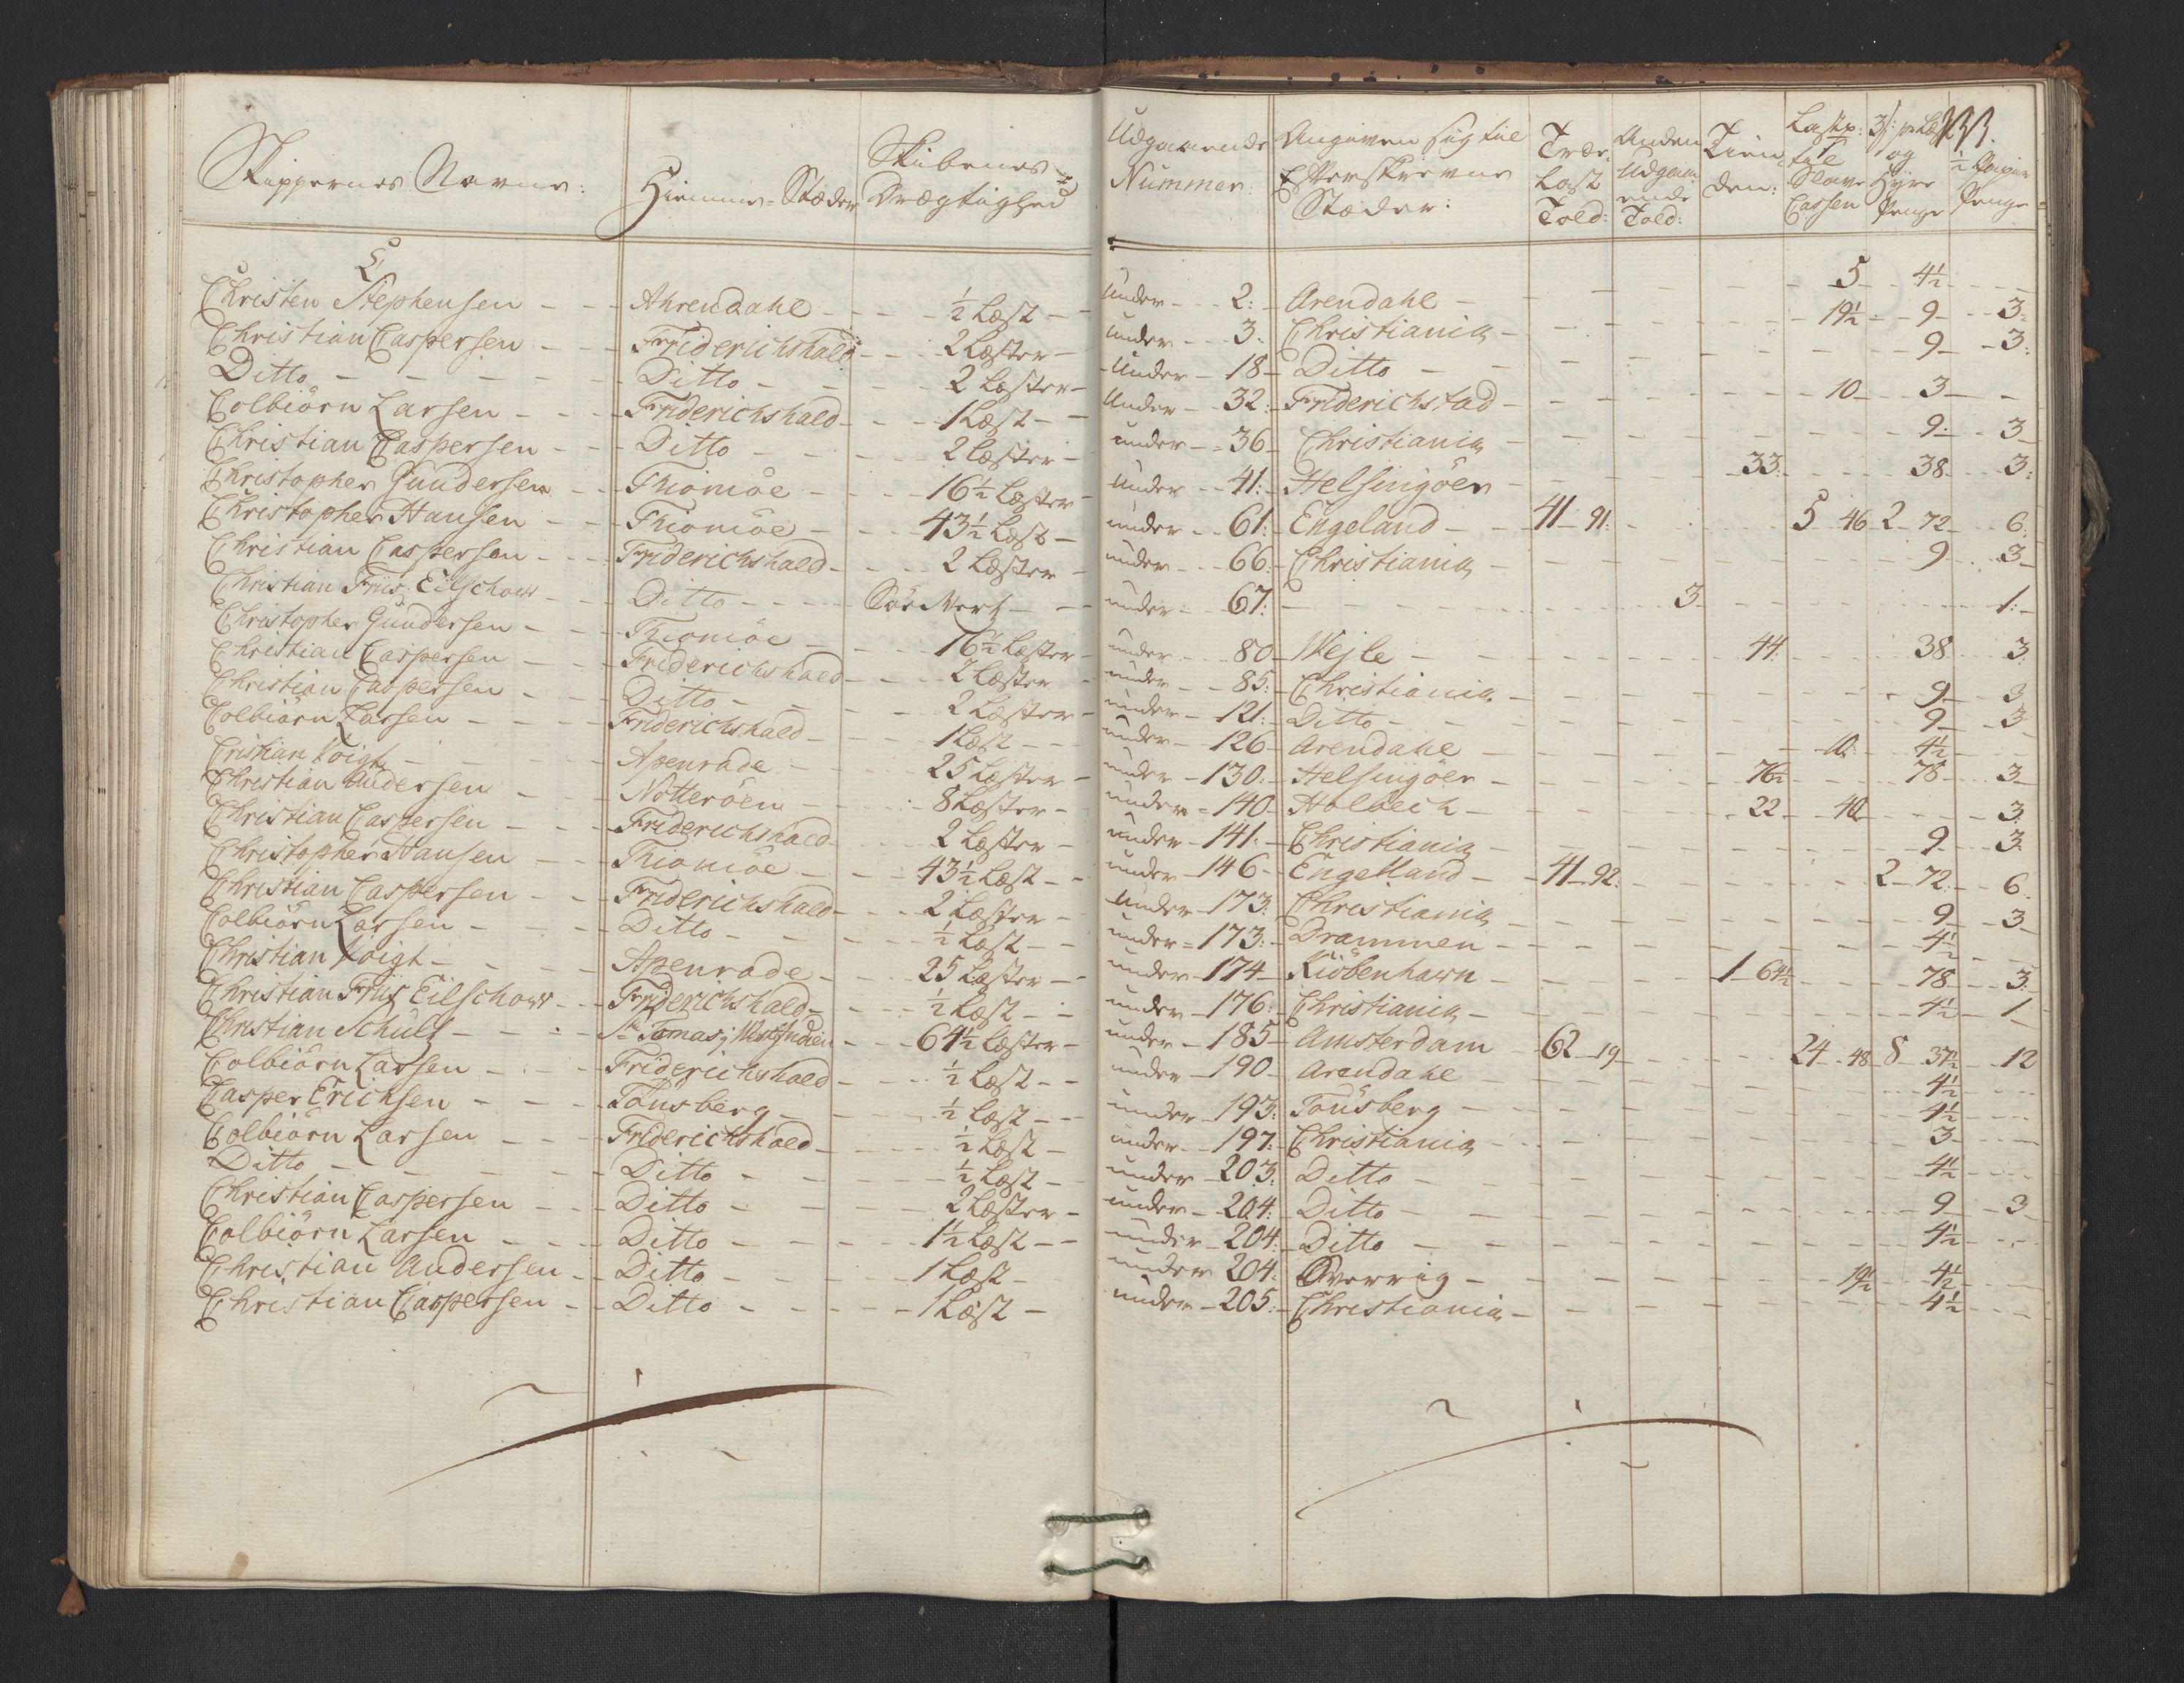 Skippernes Navne: Hiemme-Stæder Skibenes Drægtighed Udgaaende Nummer: Angiven sig til Efterskrevne Stæder: Træe Last Told: Anden Udgaaende Told: Tienden: Lastp: til Slave Cassen 3 s: pr Læst og Hyre Penge ½ Penge
C
Christen Stephensen - Ahrendahl - ½ Læst - under 2: Arendahl - 5 - 4½
Christian Caspersen - Friderichshald - 2 Læster - under 3. Christiania - 19½ - 9 - 3:
Ditto - Ditto - 2 Læster - Under 18 - Ditto - 9 - 3:
Colbiörn Larsen - Friderichshald - 1 Læst - Under 32: Friderichstad - 10 - 3 -
Christian Caspersen - Ditto - 2 Læster - under 36 Christiania - 9: - 3
Christopher Gundersen - Thiomöe - 16½ Læster - Under 41: Helsingöer - 33: - 38 - 3:
Christopher Hansen - Thiomöe - 43½ Læst - under 61: Engeland - 41 91: 5 46 2 72 - 6:
Christian Caspersen - Friderichshald - 2 Læster - under 66: Christiania - 9 - 3
Christian Friis Eilschow - Ditto - under 67: - 3 - 1:
Christopher Gundersen - Thiomöe - 16½ Læster - under 80 - Wejle - 44: - 38 3
Christian Caspersen - Friderichshald - 2 Læster - under 85: Christiania - 9 - 3
Christian Caspersen - Ditto - 2 Læster - under 121: Ditto - 9 - 3
Colbiörn Larsen - Friderichshald - 1 Læst - under 126 - Arendahl - 10: - 4½
Cristian Voigt - Apenrade - 25 Læster - under 130: Helsingöer - 76½ - 78 - 3
Christian Andersen - Nötteröen - 8 Læster - under 140 - Holbech - 22 - 40 - 3.
Christian Caspersen - Friderichshald - 2 Læster - under 141: Christiania - 9 - 3
Christopher Hansen - Thiomöe - 43½ Læst - under 146 - Engelland - 41 92: 2 72 - 6
Christian Caspersen - Friderichshald - 2 Læster - Under 173: Christiania - 9 - 3
Colbiörn Larsen - Ditto - ½ Læst - under 173: Drammen - 4½
Christian Voigt - Apenrade - 25 Læster - under 174 - Kiöbenhavn - 1 64½ - 78 - 3
Christian Friis Eilschow - Friderichshald - ½ Læst - under 176: Christiania - 4½ - 1
Christian Schult - St Tomas i Westindien - 64½ Læster - under 185 - Amsterdam - 62 19 - 24 48 8 37½ - 12
Colbiörn Larsen - Friderichshald - ½ Læst - under 190 - Arendahl - 4½
Casper Erichsen - Tönsberg - ½ Læst - under 193: Tönsberg - 4½
Colbiörn Larsen - Friderichshald - ½ Læst - under 197: Christiania - 3
Ditto - Ditto - ½ Læst - under 203: Ditto - 4½
Christian Caspersen - Ditto - 2 Læster - under 204: Ditto - 9 - 3
Colbiörn Larsen - Ditto - 1½ Læst - under 204: Ditto - 4½
Christian Andersen - Ditto - 1 Læst - under 204: Sverrig - 19½ 4½
Christian Caspersen - Ditto - 1 Læst - under 205: Christiania - 4½